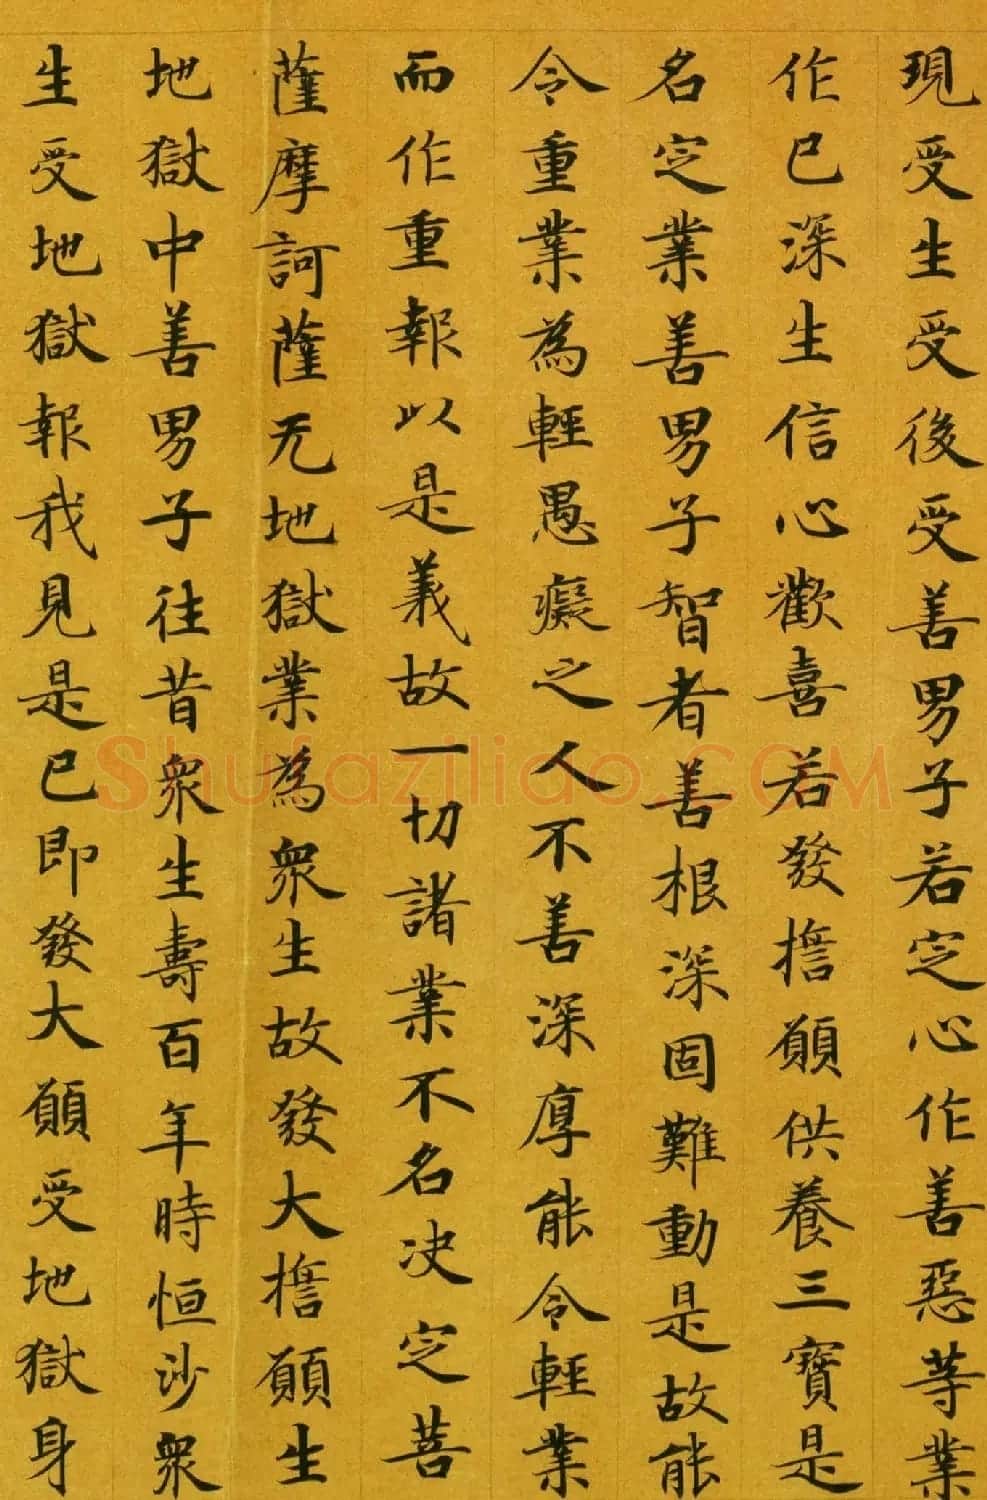 現受生受後受善男子若定心作善惡等業
作已深生信心歡喜若發擔願供養三寶是
名定業善男子智者善根深固難動是故能
令重業為輕愚癡之人不善深厚能令輕業
而作重報以是義故一切諸業不名决定菩
薩摩訶薩无地獄業為衆生故發大擔願生
地獄中善男子往昔衆生壽百年時恒沙衆
生受地獄報我見是已即發大願受地獄身
Shufaziliao.COM